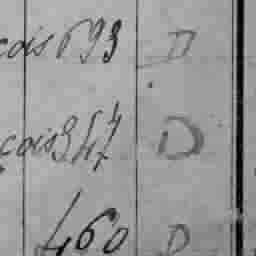 çois 693 D
çois 347 D
460 D